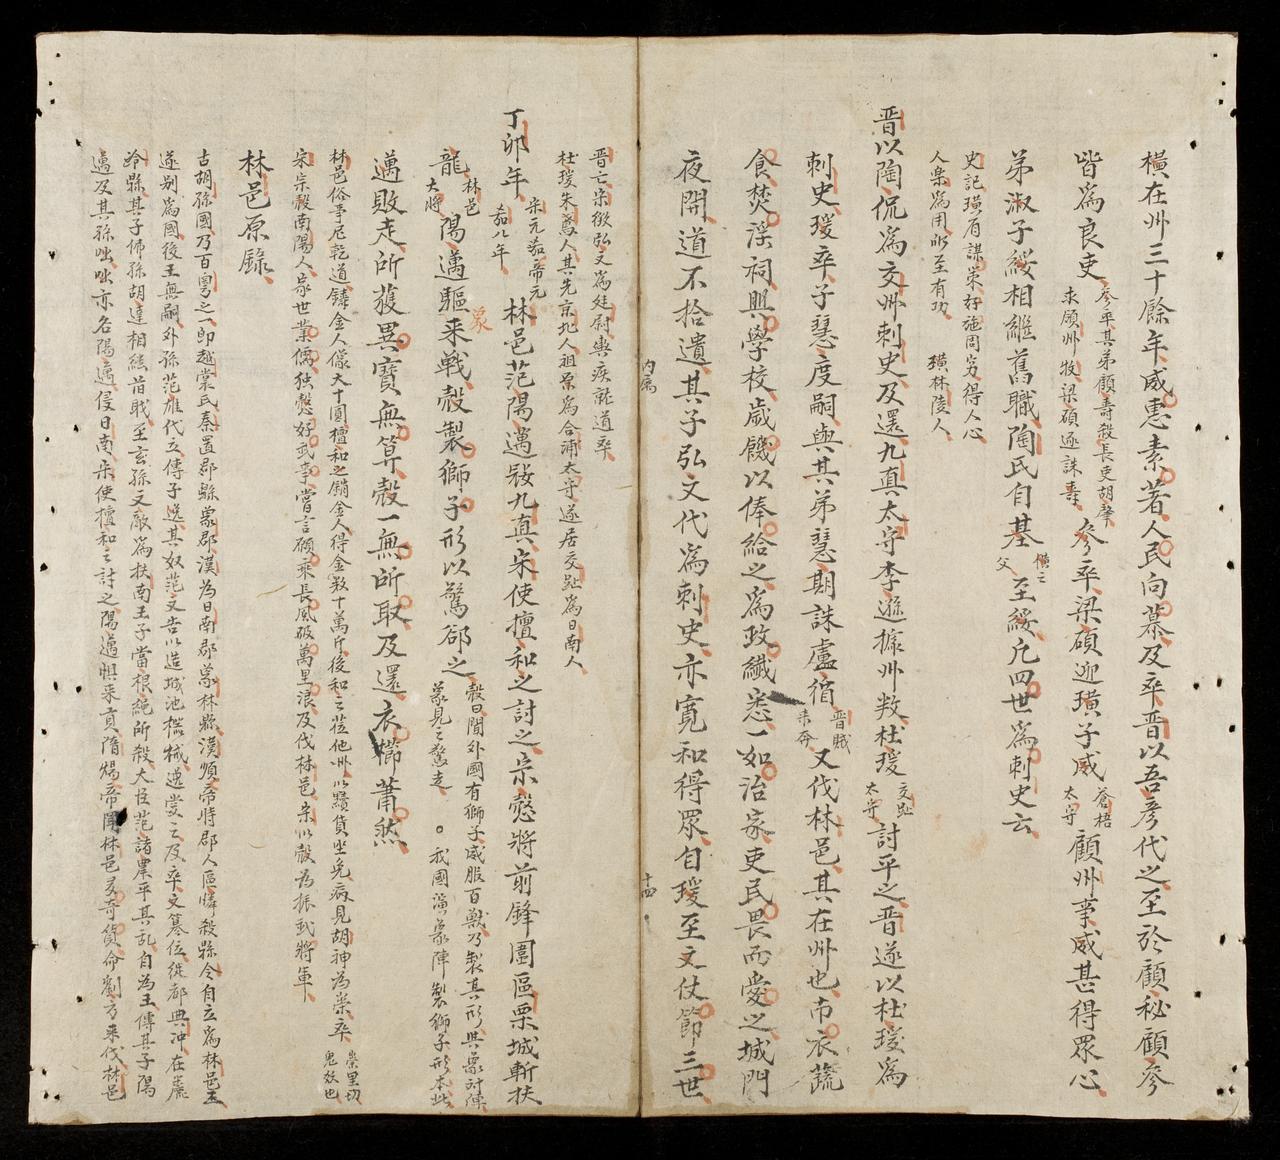 橫在州三十餘年威惠素著人民向慕及卒晋以吾彥代之至於顧秘顧參
皆爲良吏
參卒其弟顧壽殺長吏胡肇
求領州牧梁碩逐誅壽
參卒梁碩迎璜子威
蒼梧
太守
領州事威甚得眾心
弟淑子綏相繼舊職陶氏自基
橫之
父
至綏凢四世爲刺史云
史記璜有謀策好施周窮得人心
人樂爲用所至有功 璜秣陵人
晋以陶侃爲交州刺史及還九真太守李遜據州叛杜瑗
交趾
太守
討平之晋遂以杜瑗爲
刺史瑗卒子慧度嗣與其弟慧期誅盧循
晋賊
来奔
又伐林邑其在州也布衣蔬
食焚淫祠興學校歲饑以俸給之爲政纖悉一如治家吏民畏而愛之城門
夜開道不拾遺其子弘文代爲刺史亦寬和得眾自瑗至文仗節三世
内属
十四
晋亡宋徵弘文爲廷尉輿疾就道卒
杜瑗朱鳶人其先京兆人祖原爲合浦太守遂居交趾爲日南人
丁卯年
宋元嘉帝元
嘉八年
林邑范陽邁𡨥九真宋使檀和之討之宗慤將前鋒圍區栗城斬扶
龍
林邑
大將
陽邁驅象来戰慤製獅子形以驚郤之
慤曰聞外國有獅子威服百獸乃製其形與象対陣
象見之驚走 。我國演象陣製獅子形本此
邁敗走所獲異寶無算慤一無所取及還衣櫛蕭然
林邑俗事尼乾道鑄金人像大十圍檀和之銷金人得金数十萬斤後和之莅他州以黷貨坐免病見胡神为祟卒
祟里切
鬼效也
宋宗慤南陽人家世業儒独慤好武事嘗言願乘長風破萬里浪及伐林邑宋以慤为振武將軍
林邑原錄
古胡孫國乃百粵之一即越裳氏秦置郡縣象郡漢为日南郡象林縣漢順帝時郡人區憐殺縣令自立爲林邑王
遂别爲國後王無嗣外孫范雄代立傳子逸其奴范文告以造城池樓械逸愛之及卒文篡位徙都典冲在農
泠縣其子佛孫胡達相継皆戰至玄孫文敵爲扶南王子當根純所殺大臣范諸農平其乱自为王傳其子陽
邁及其孫咄咄亦名陽邁侵日南宋使檀和之討之陽邁惧来貢隋煬帝聞林邑多奇貨命劉方来伐林邑